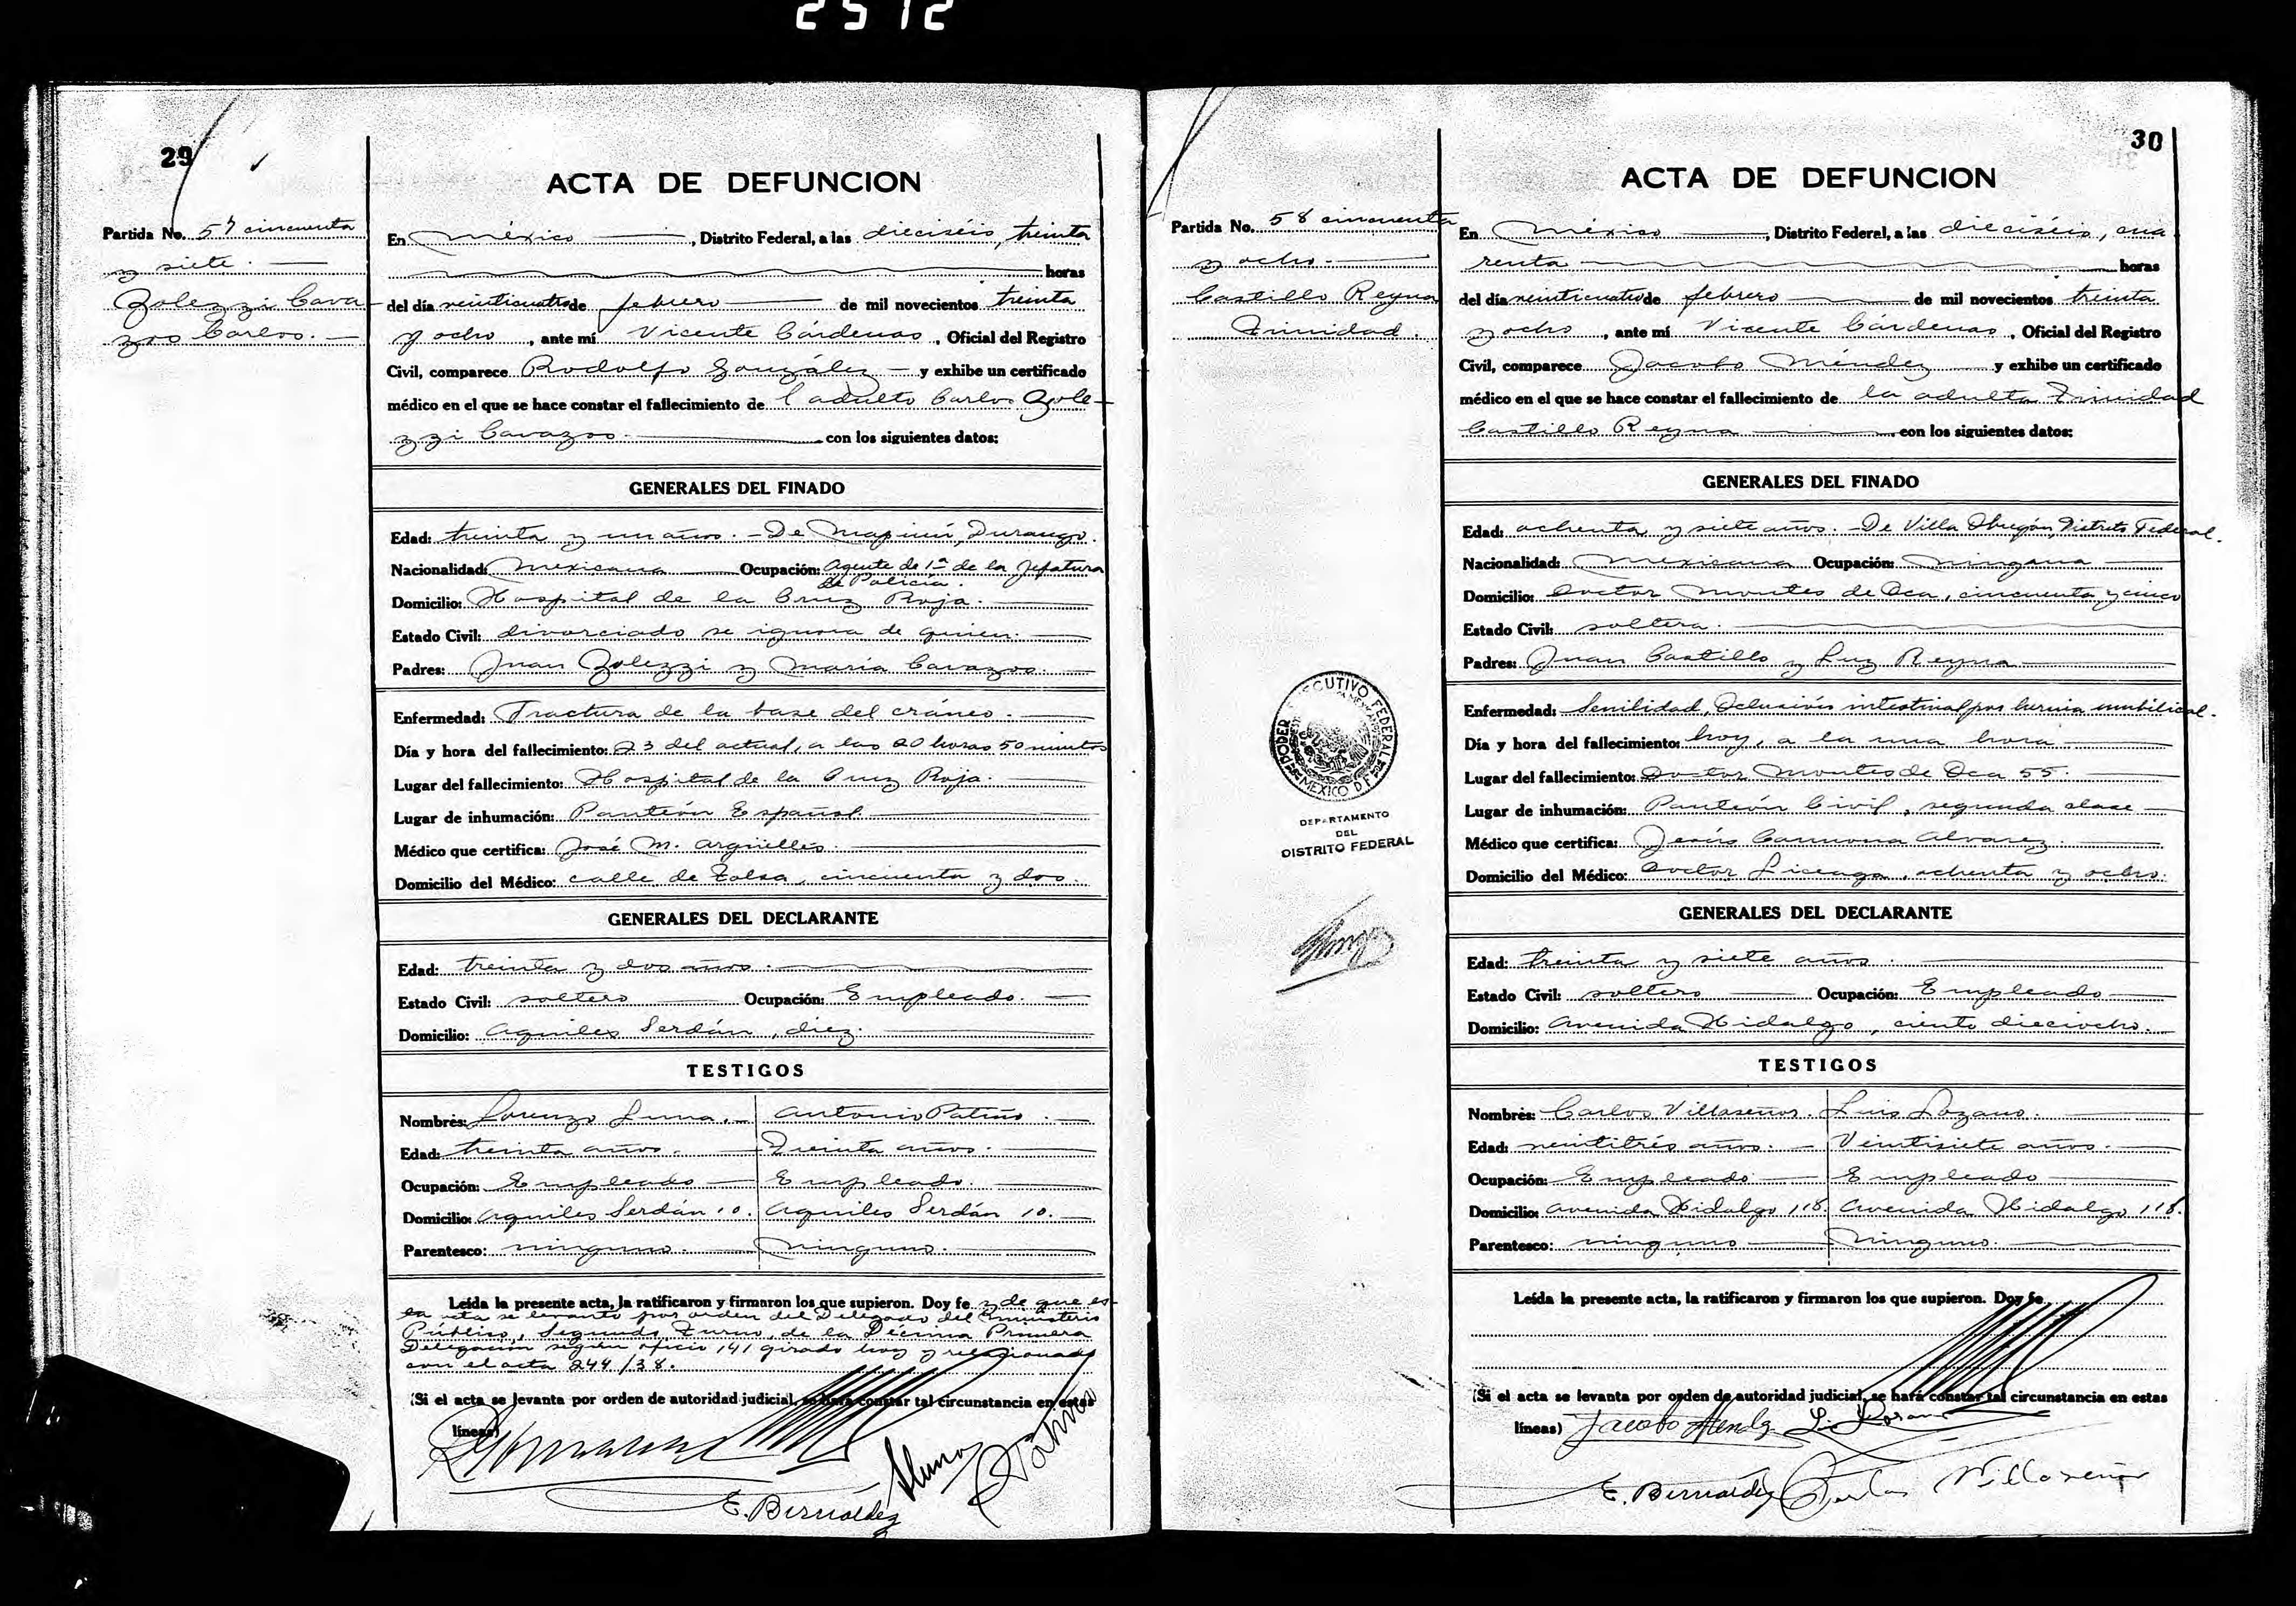 2572
29
ACTA DE DEFUNCION
Partida No. 57 cincuenta
y siete.
Zolezzi Cava
zos Carlos.
En México, Distrito Federal, a las dieciséis, treinta
horas
del día veinticuatro de febrero de mil novecientos treinta
y ocho, ante mí Vicente Cárdenas, Oficial del Registro
Civil, comparece Rodolfo González y exhibe un certificado
médico en el que se hace constar el fallecimiento de l adulto Carlos Zole-
zzi Cavazos. con los siguientes datos:
GENERALES DEL FINADO
Edad: treinta y un años. - De Mapimí, Durango.
Nacionalidad: Mexicana Ocupación: Agente de 1a de la Jefatura
de Policía.
Domicilio: Hospital de la Cruz Roja.
Estado Civil: divorciado se ignora de quien.
Padres: Juan Zolezzi y María Cavazos.
Enfermedad: Fractura de la base del cráneo.
Día y hora del fallecimiento: 23 del actual, a las 20 horas 50 minutos
Lugar del fallecimiento: Hospital de la Cruz Roja.
Lugar de inhumación: Panteón Español.
Médico que certifica: José M. Argüelles.
Domicilio del Médico: calle de Tolsa, cincuenta y dos.
GENERALES DEL DECLARANTE
Edad: treinta y dos años.
Estado Civil: soltero Ocupación: Empleado.
Domicilio: Aquiles Serdán, diez.
TESTIGOS
Nombres: Lorenzo Luna. Antonio Patiño.
Edad: treinta años. Treinta años.
Ocupación: Empleado Empleado.
Domicilio: Aquiles Serdán 10. Aquiles Serdán 10.
Parentesco: ninguno. ninguno.
Leída la presente acta, la ratificaron y firmaron los que supieron. Doy fe y de que es-
ta acta se levanto por orden del Delegado del Ministerio
Público, Segundo Turno, de la Décima Primera
Delegación según oficio 141 girado hoy y relacionado
con el acta 244/38.
(Si el acta se levanta por orden de autoridad judicial, se hará constar tal circunstancia en estas
líneas)
E. Bernáldez
30
ACTA DE DEFUNCION
Partida No. 58 cincuenta
y ocho.
Castillo Reyna
Trinidad.
En México, Distrito Federal, a las dieciséis, cua
renta horas
del día veinticuatro de febrero de mil novecientos treinta
y ocho, ante mí Vicente Cárdenas, Oficial del Registro
Civil, comparece Jacobo Méndez y exhibe un certificado
médico en el que se hace constar el fallecimiento de la adulta Trinidad
Castillo Reyna con los siguientes datos:
GENERALES DEL FINADO
Edad: ochenta y siete años. - De Villa Obregón, Distrito Federal.
Nacionalidad: Mexicana Ocupación: ninguna
Domicilio: Doctor Montes de Oca, cincuenta y cinco
Estado Civil: soltera.
Padres: Juan Castillo y Luz Reyna
Enfermedad: Senilidad, Oclusión intestinal por hernia umbilical.
Día y hora del fallecimiento: hoy, a la una hora
Lugar del fallecimiento: Doctor Montes de Oca 55.
Lugar de inhumación: Panteón Civil, segunda clase
Médico que certifica: Jesús Carmona Alvarez.
Domicilio del Médico: Doctor Liceaga, ochenta y ocho.
GENERALES DEL DECLARANTE
Edad: treinta y siete años.
Estado Civil: soltero Ocupación: Empleado
Domicilio: Avenida Hidalgo, ciento dieciocho.
TESTIGOS
Nombres: Carlos Villaseñor. Luis Lozano.
Edad: veintitrés años. Veintisiete años.
Ocupación: Empleado Empleado
Domicilio: Avenida Hidalgo 118. Avenida Hidalgo 118.
Parentesco: ninguno ninguno.
Leída la presente acta, la ratificaron y firmaron los que supieron. Doy fe
(Si el acta se levanta por orden de autoridad judicial, se hará constar tal circunstancia en estas
líneas) Jacobo Mendez
E. Bernáldez Carlos Villaseñor
PODER EJECUTIVO FEDERAL
MEXICO D F
DEPARTAMENTO
DEL
DISTRITO FEDERAL